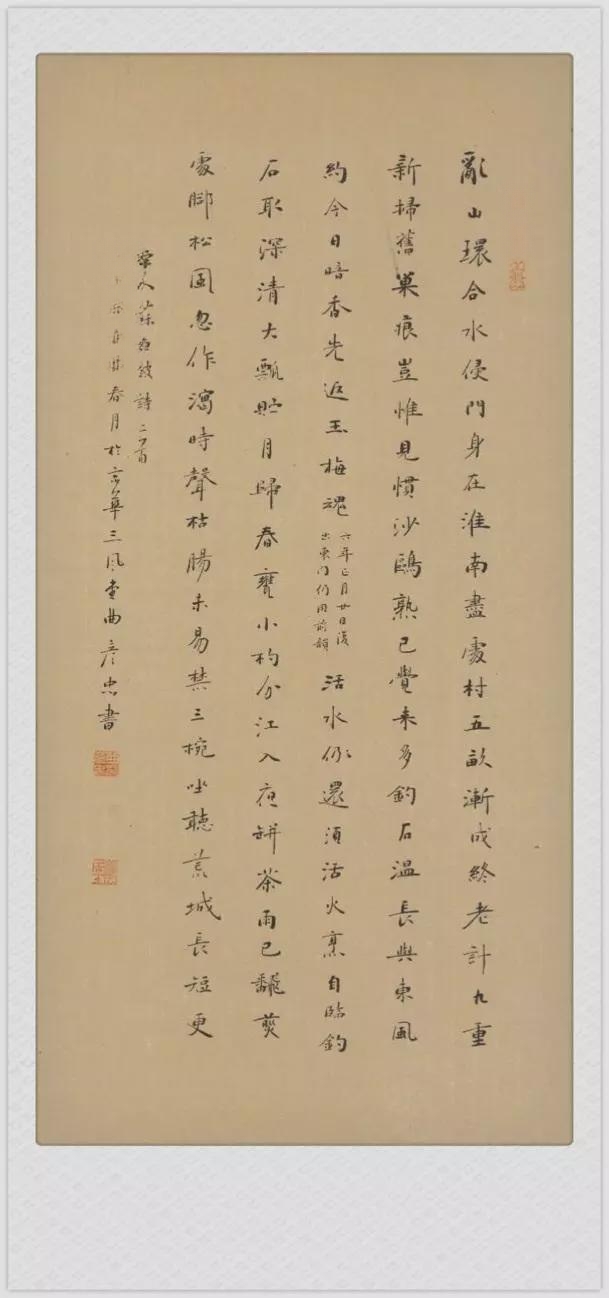 亂山環合水侵門身在淮南盡處村五畝漸成終老計九重
新掃舊巢痕豈惟見慣沙鷗熟已覺来多釣石温長與東風
約今日暗香先返玉梅魂
六年正月廿日復
出東門仍用前韻
活水仍還須活火烹自臨釣
石取深清大瓢貯月歸春甕小杓分江入夜缾茶雨已翻煎
處脚松風忽作瀉時聲枯腸未易禁三椀坐聽荒城長短更
宋人蘇詩二首
春月於京華三風堂曲彦忠書